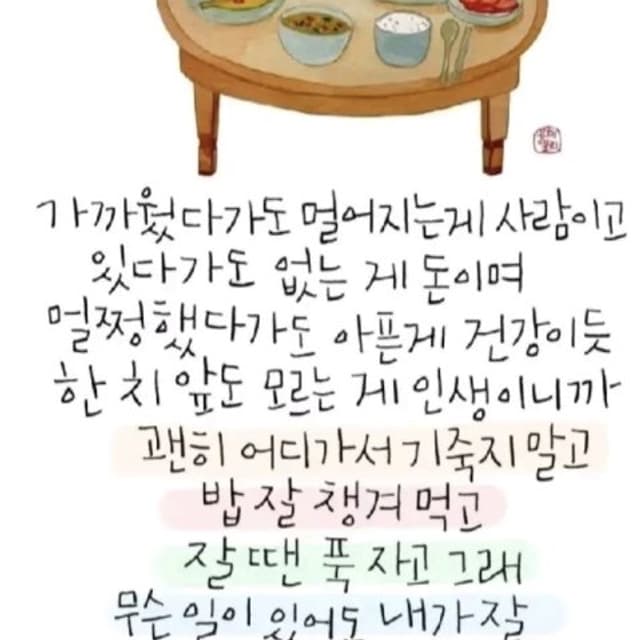 가까웠다가도 멀어지는게 사람이고
있다가도 없는 게 돈이며
멀쩡했다가도 아픈게 건강이듯
한 치 앞도 모르는 게 인생이니까
괜히 어디가서 기죽지 말고
밥 잘 챙겨 먹고
잘 땐 푹 자고 그래
무슨 일이 있어도 내가 잘